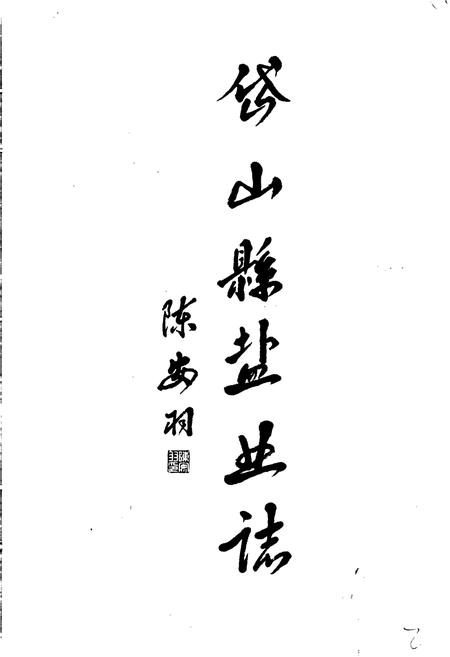 岱山縣盐业誌
陈安羽